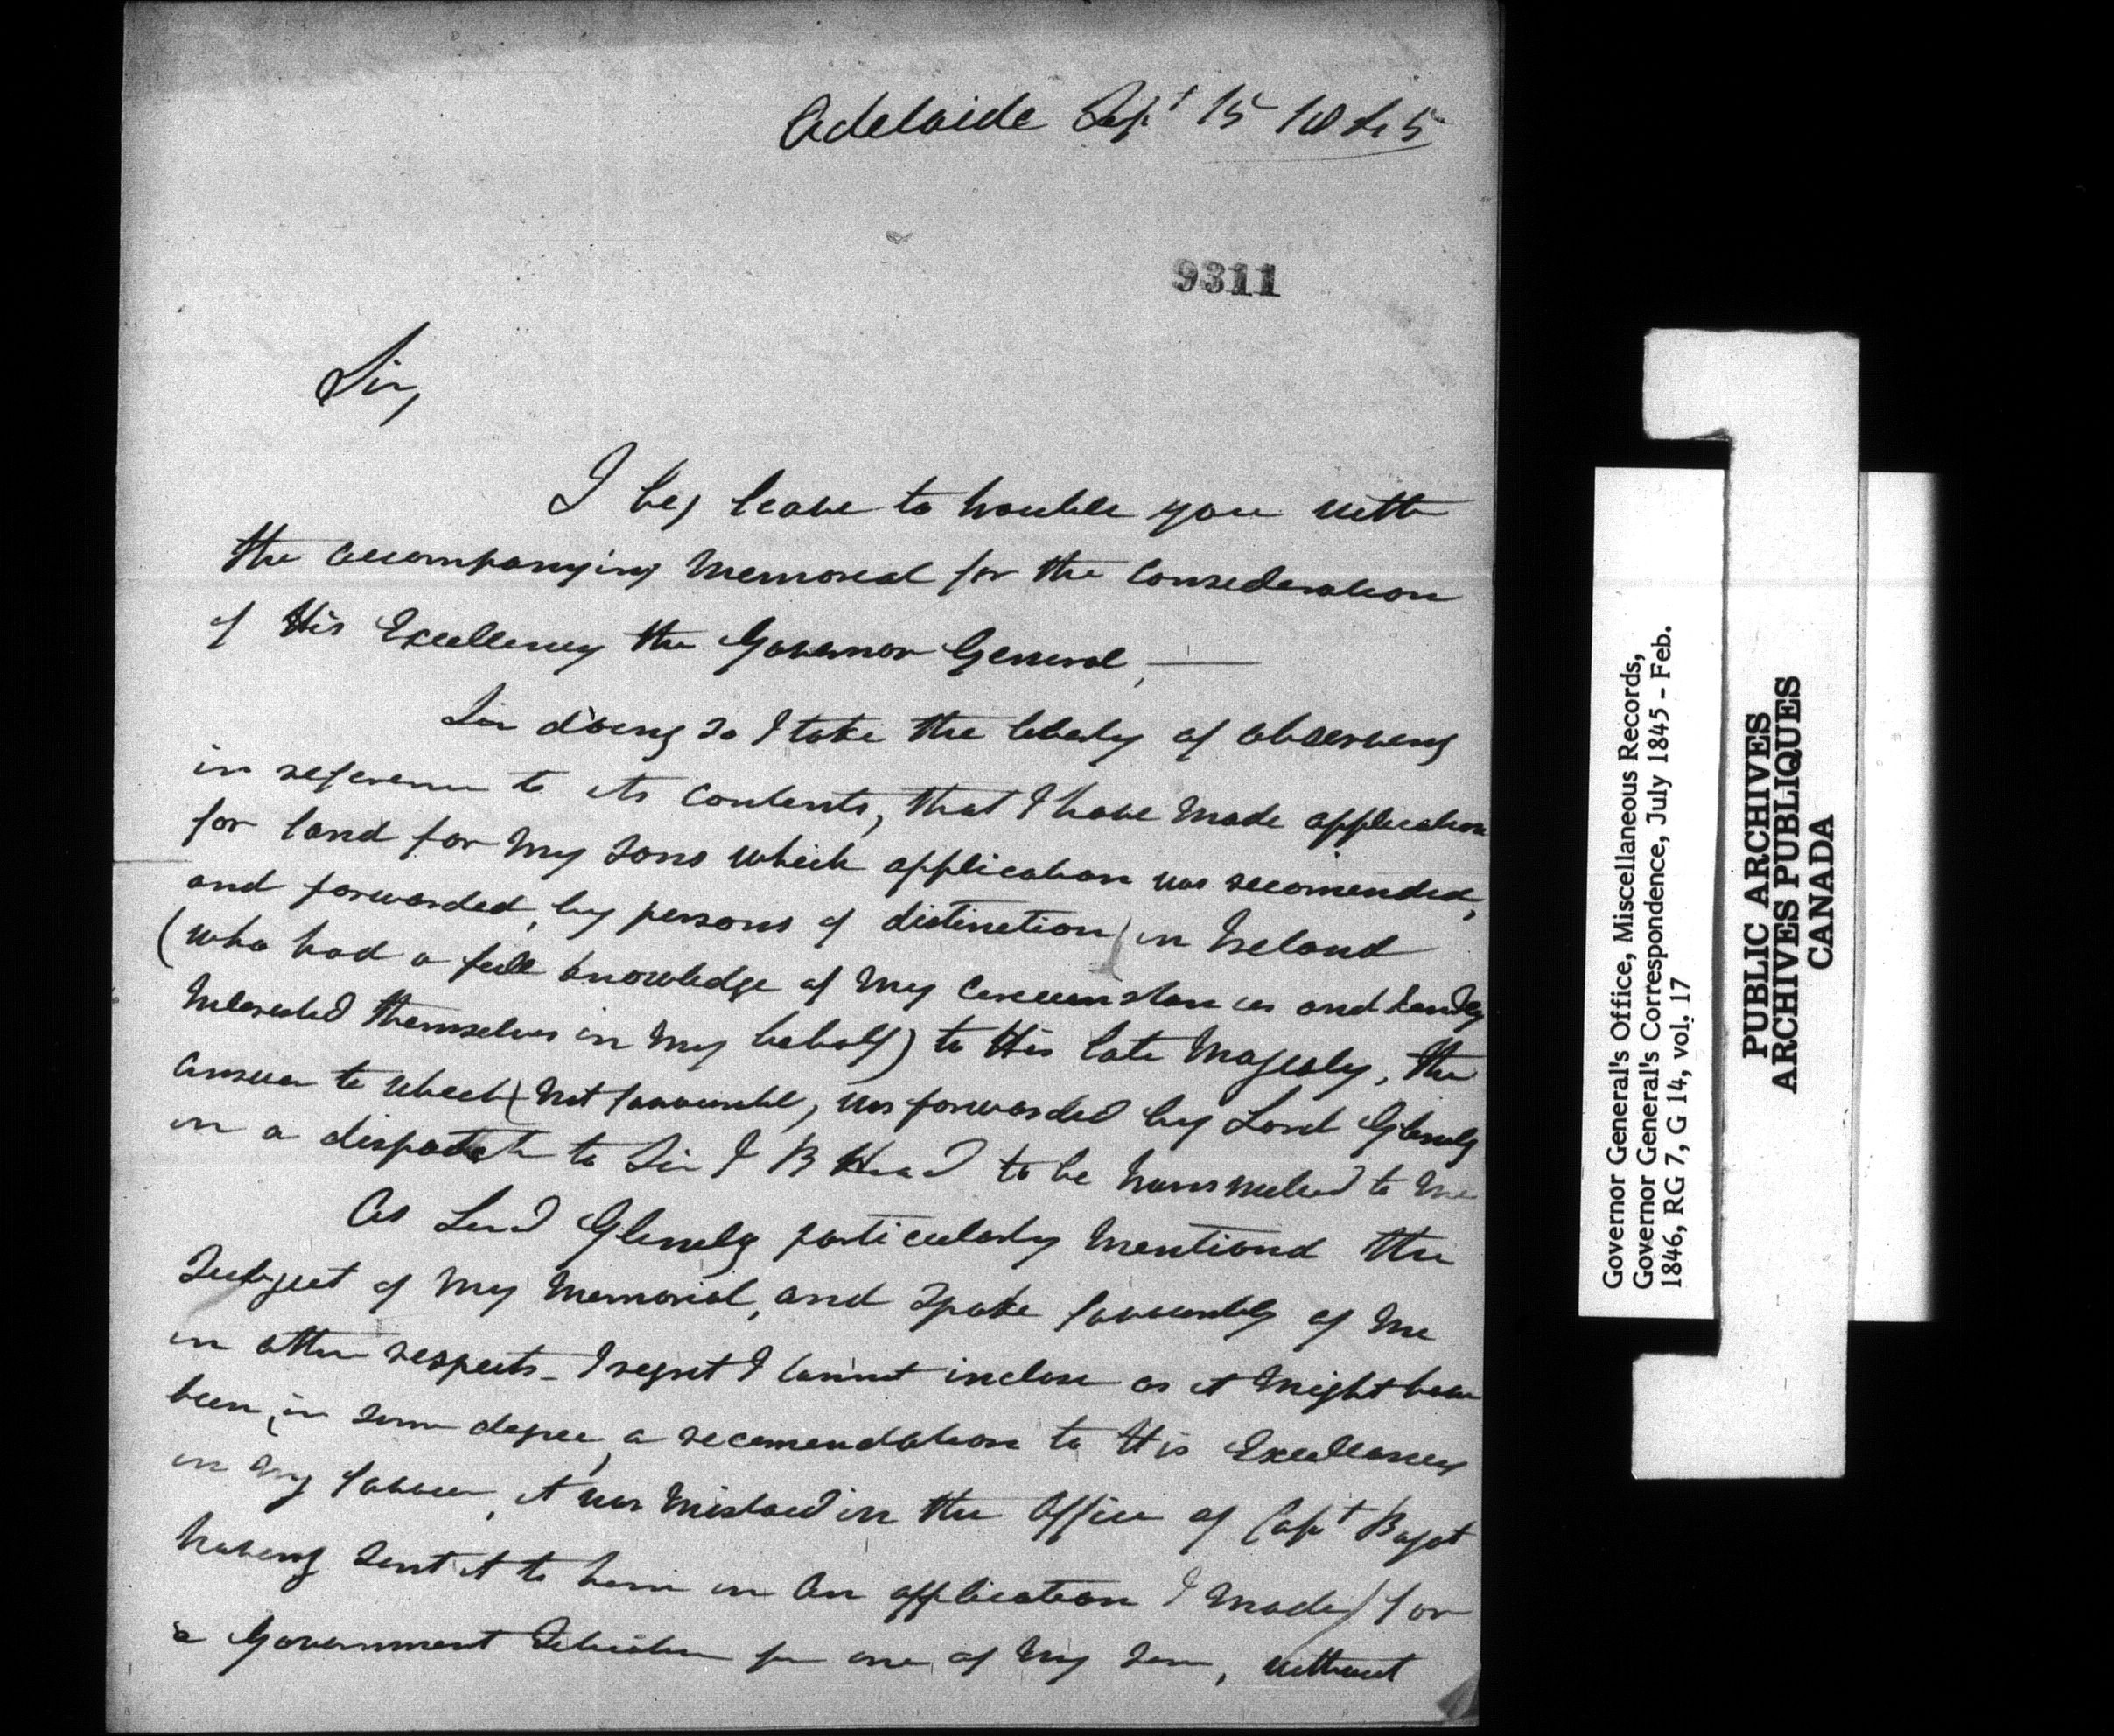 Adelaide Sept 15 1845
9311
Sir,
I beg leave to trouble you with
the accompanying Memorial for the Consideration
of His Excellency the Governor General, —
In doing so I take the liberty of observing
in reference to its contents, that I have made application
for land for my sons which application was recomended,
and forwarded, by persons of distinction, in Ireland
(who had a full knowledge of my circumstances and kindly
interested themselves in my behalf) to His late Majesty, the
answer to which (not favourable, was forwarded by Lord Glenelg
in a dispatch to Sir F B Head to be transmitted to me
As Lord Glenelg particularly mentiond the
Subject of my Memorial, and spoke favourably of me
in other respects – I regret I cannot inclose as it might have
been, in some degree, a recomendation to His Excellency
in my favour, it was mislaid in the Office of Capt Bagot
having sent it to him in an application I made, for
a Government Situation for one of my sons, without
Governor General's Office, Miscellaneous Records,
Governor General's Correspondence, July 1845 - Feb.
1846, RG 7, G 14, vol. 17
PUBLIC ARCHIVES
ARCHIVES PUBLIQUES
CANADA